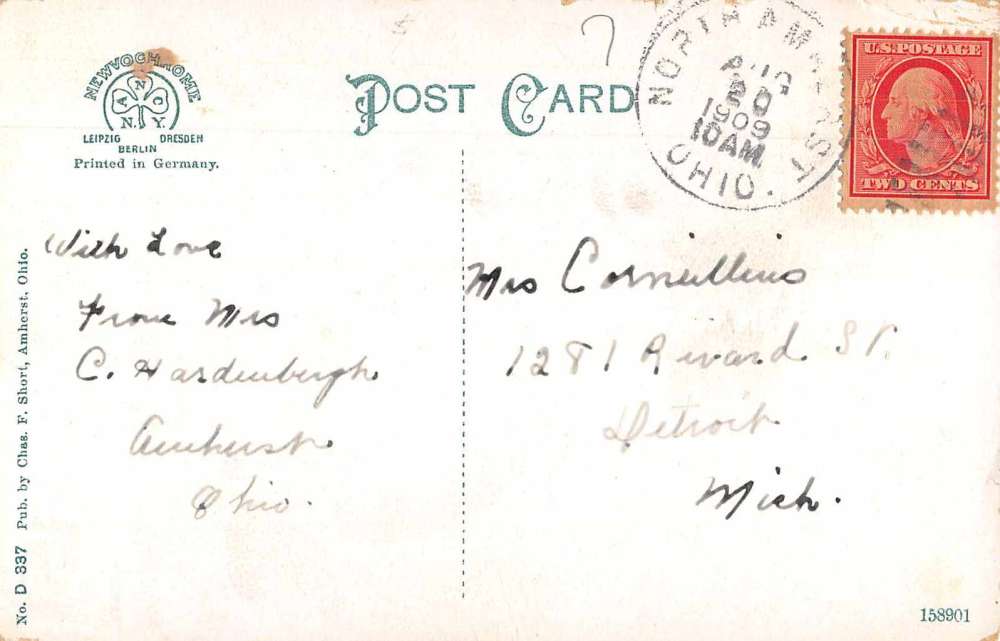 NEWVOCHROME
A N C
N.Y.
LEIPZIG DRESDEN
BERLIN
Printed in Germany.
POST CARD
NORTH AMHERST
AUG
20
1909
10AM
OHIO.
U.S. POSTAGE
TWO CENTS
With Love
From Mrs
C. Hardenburgh
Amherst
Ohio.
Mrs Corneillius
1281 Rivard St.
Detroit
Mich.
No. D 337 Pub. by Chas. F. Short, Amherst, Ohio.
158901